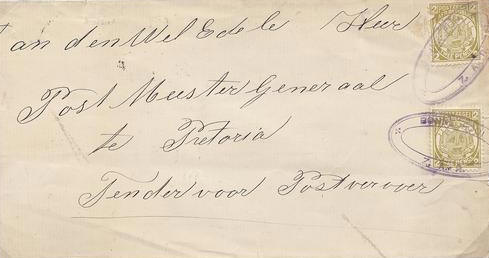 Aan den Wel Edele Heer
Post Meester Generaal
te Pretoria
Tender voor Postvervoer